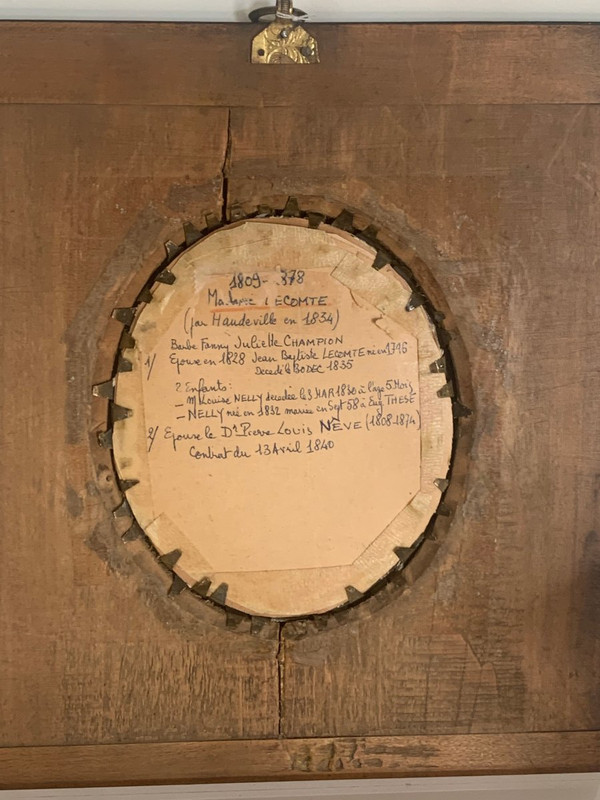 1809- .878
Madame LECOMTE
(par Haudeville en 1834)
Berbe Fanny Juliette CHAMPION
1/ Epouse en 1828 Jean Baptiste LECOMTE né en 1796
Decedé le 30 DEC 1835
2 Enfants:
- M Louise NELLY decedée le 3 MAR 1830 à l'age 5 Mois
- NELLY née en 1832 mariée en Sept 58 à Eug THESE
2/ Epouse le Dr Pierre Louis NÈVE (1808-1874)
Contrat du 13 Avril 1840